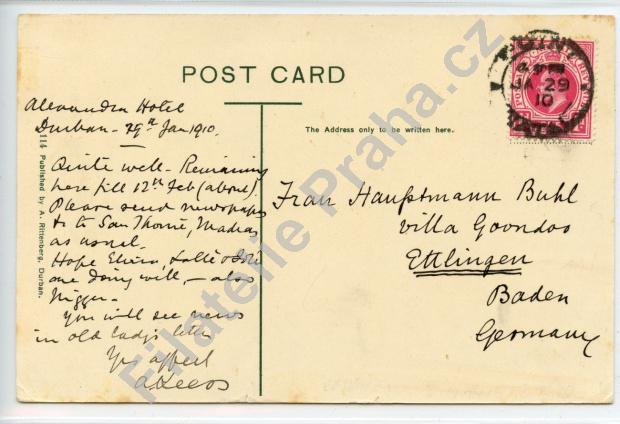 POST CARD
Alexandra Hotel
Durban - 29th Jan 1910.
The Address only to be written here.
Quite well - Remaining
here till 12th Feb (about).
Please send newspapers
to San Thomé, Madras
as usual.
Hope Elvira,
are doing well, - also
Nigger.
You will see news
in old lady's letter
Yrs affect
Frau Hauptmann Buhl
Villa Goondoo
Ettlingen
Baden
Germany
POINT
JA 29
10
NATAL
114 Published by A. Rittenberg, Durban.
Filatelie Praha.cz